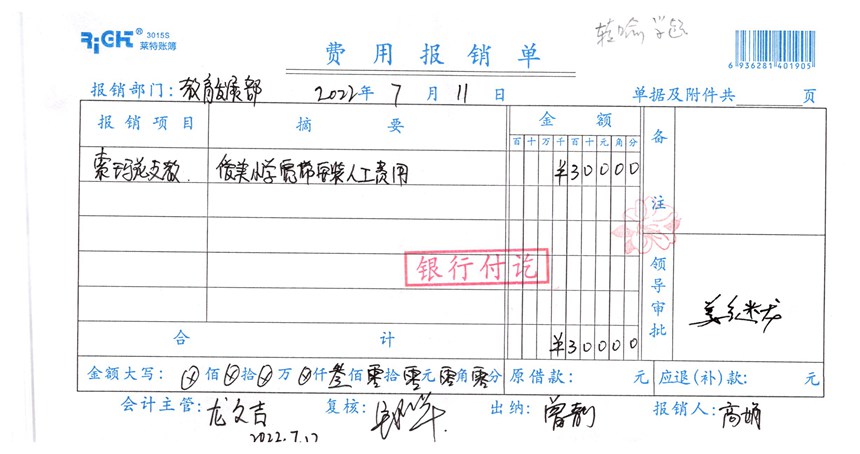 RiGHT® 3015S
莱特账簿
费用报销单
转喻学超
6 936281 401905
报销部门：教育发展部 2022年7月11日 单据及附件共 页
报销项目 摘要 金额 备注
百十万千百十元角分
索玛花支教 俊美小学窗帘安装人工费用 ¥30000
银行付讫
领导审批
合计 ¥30000
金额大写：⊗佰⊗拾⊗万⊗仟叁佰零拾零元零角零分 原借款： 元 应退(补)款： 元
会计主管：龙文吉 复核： 出纳：曾静 报销人：高娟
2022.7.12